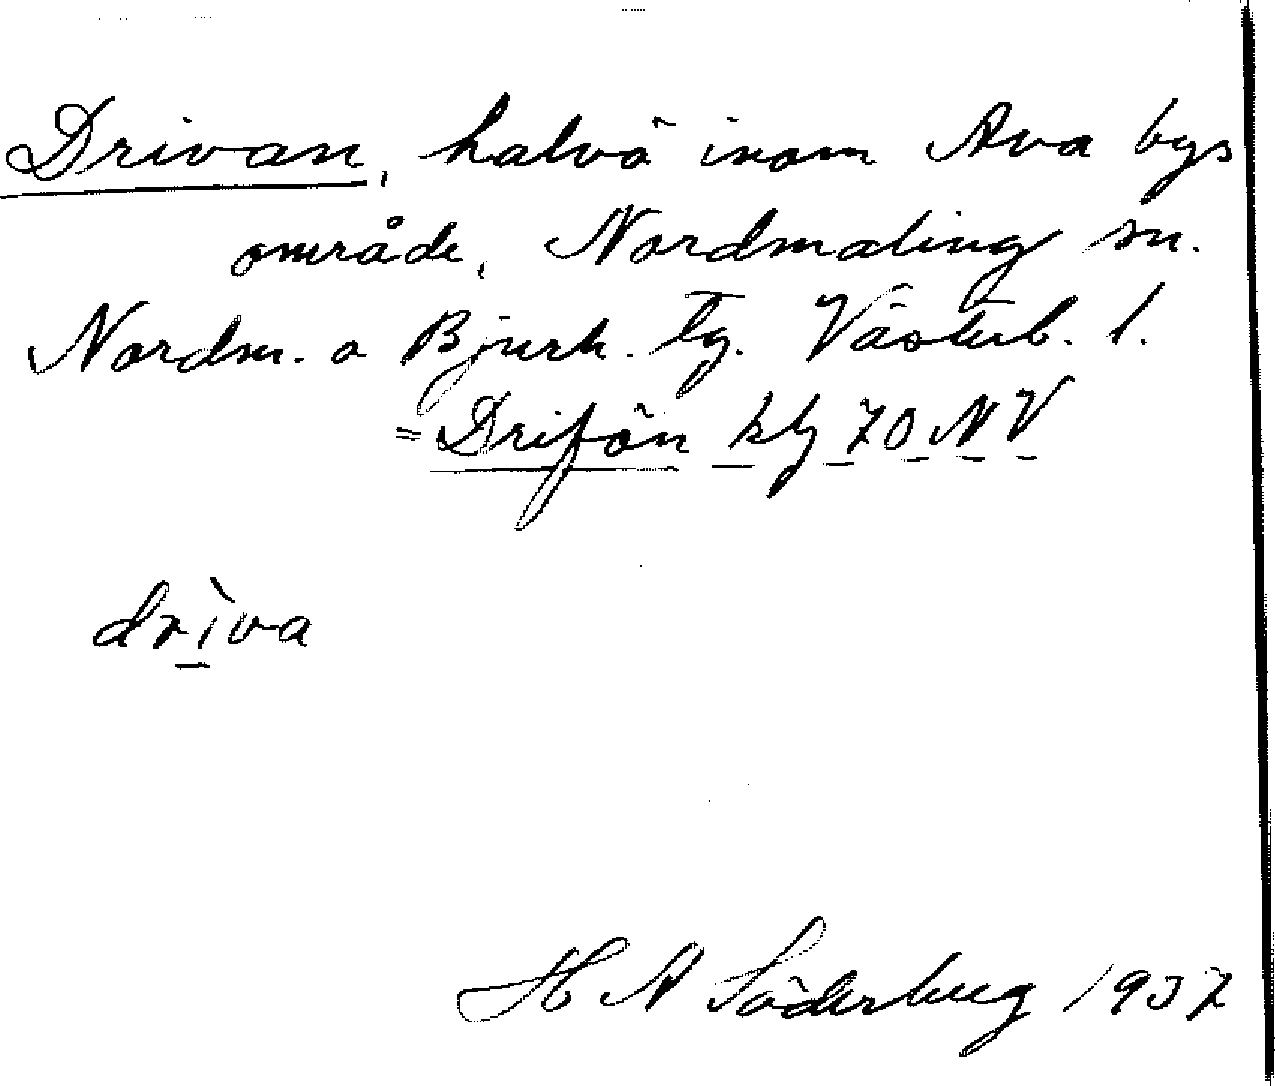 Drivan, halvö inom Ava bys
område, Nordmaling sn.
Nordm. o Bjurh. tg. Västerb. l.
= Drifön kbl 70 NV
drìva
H A Söderberg 1937